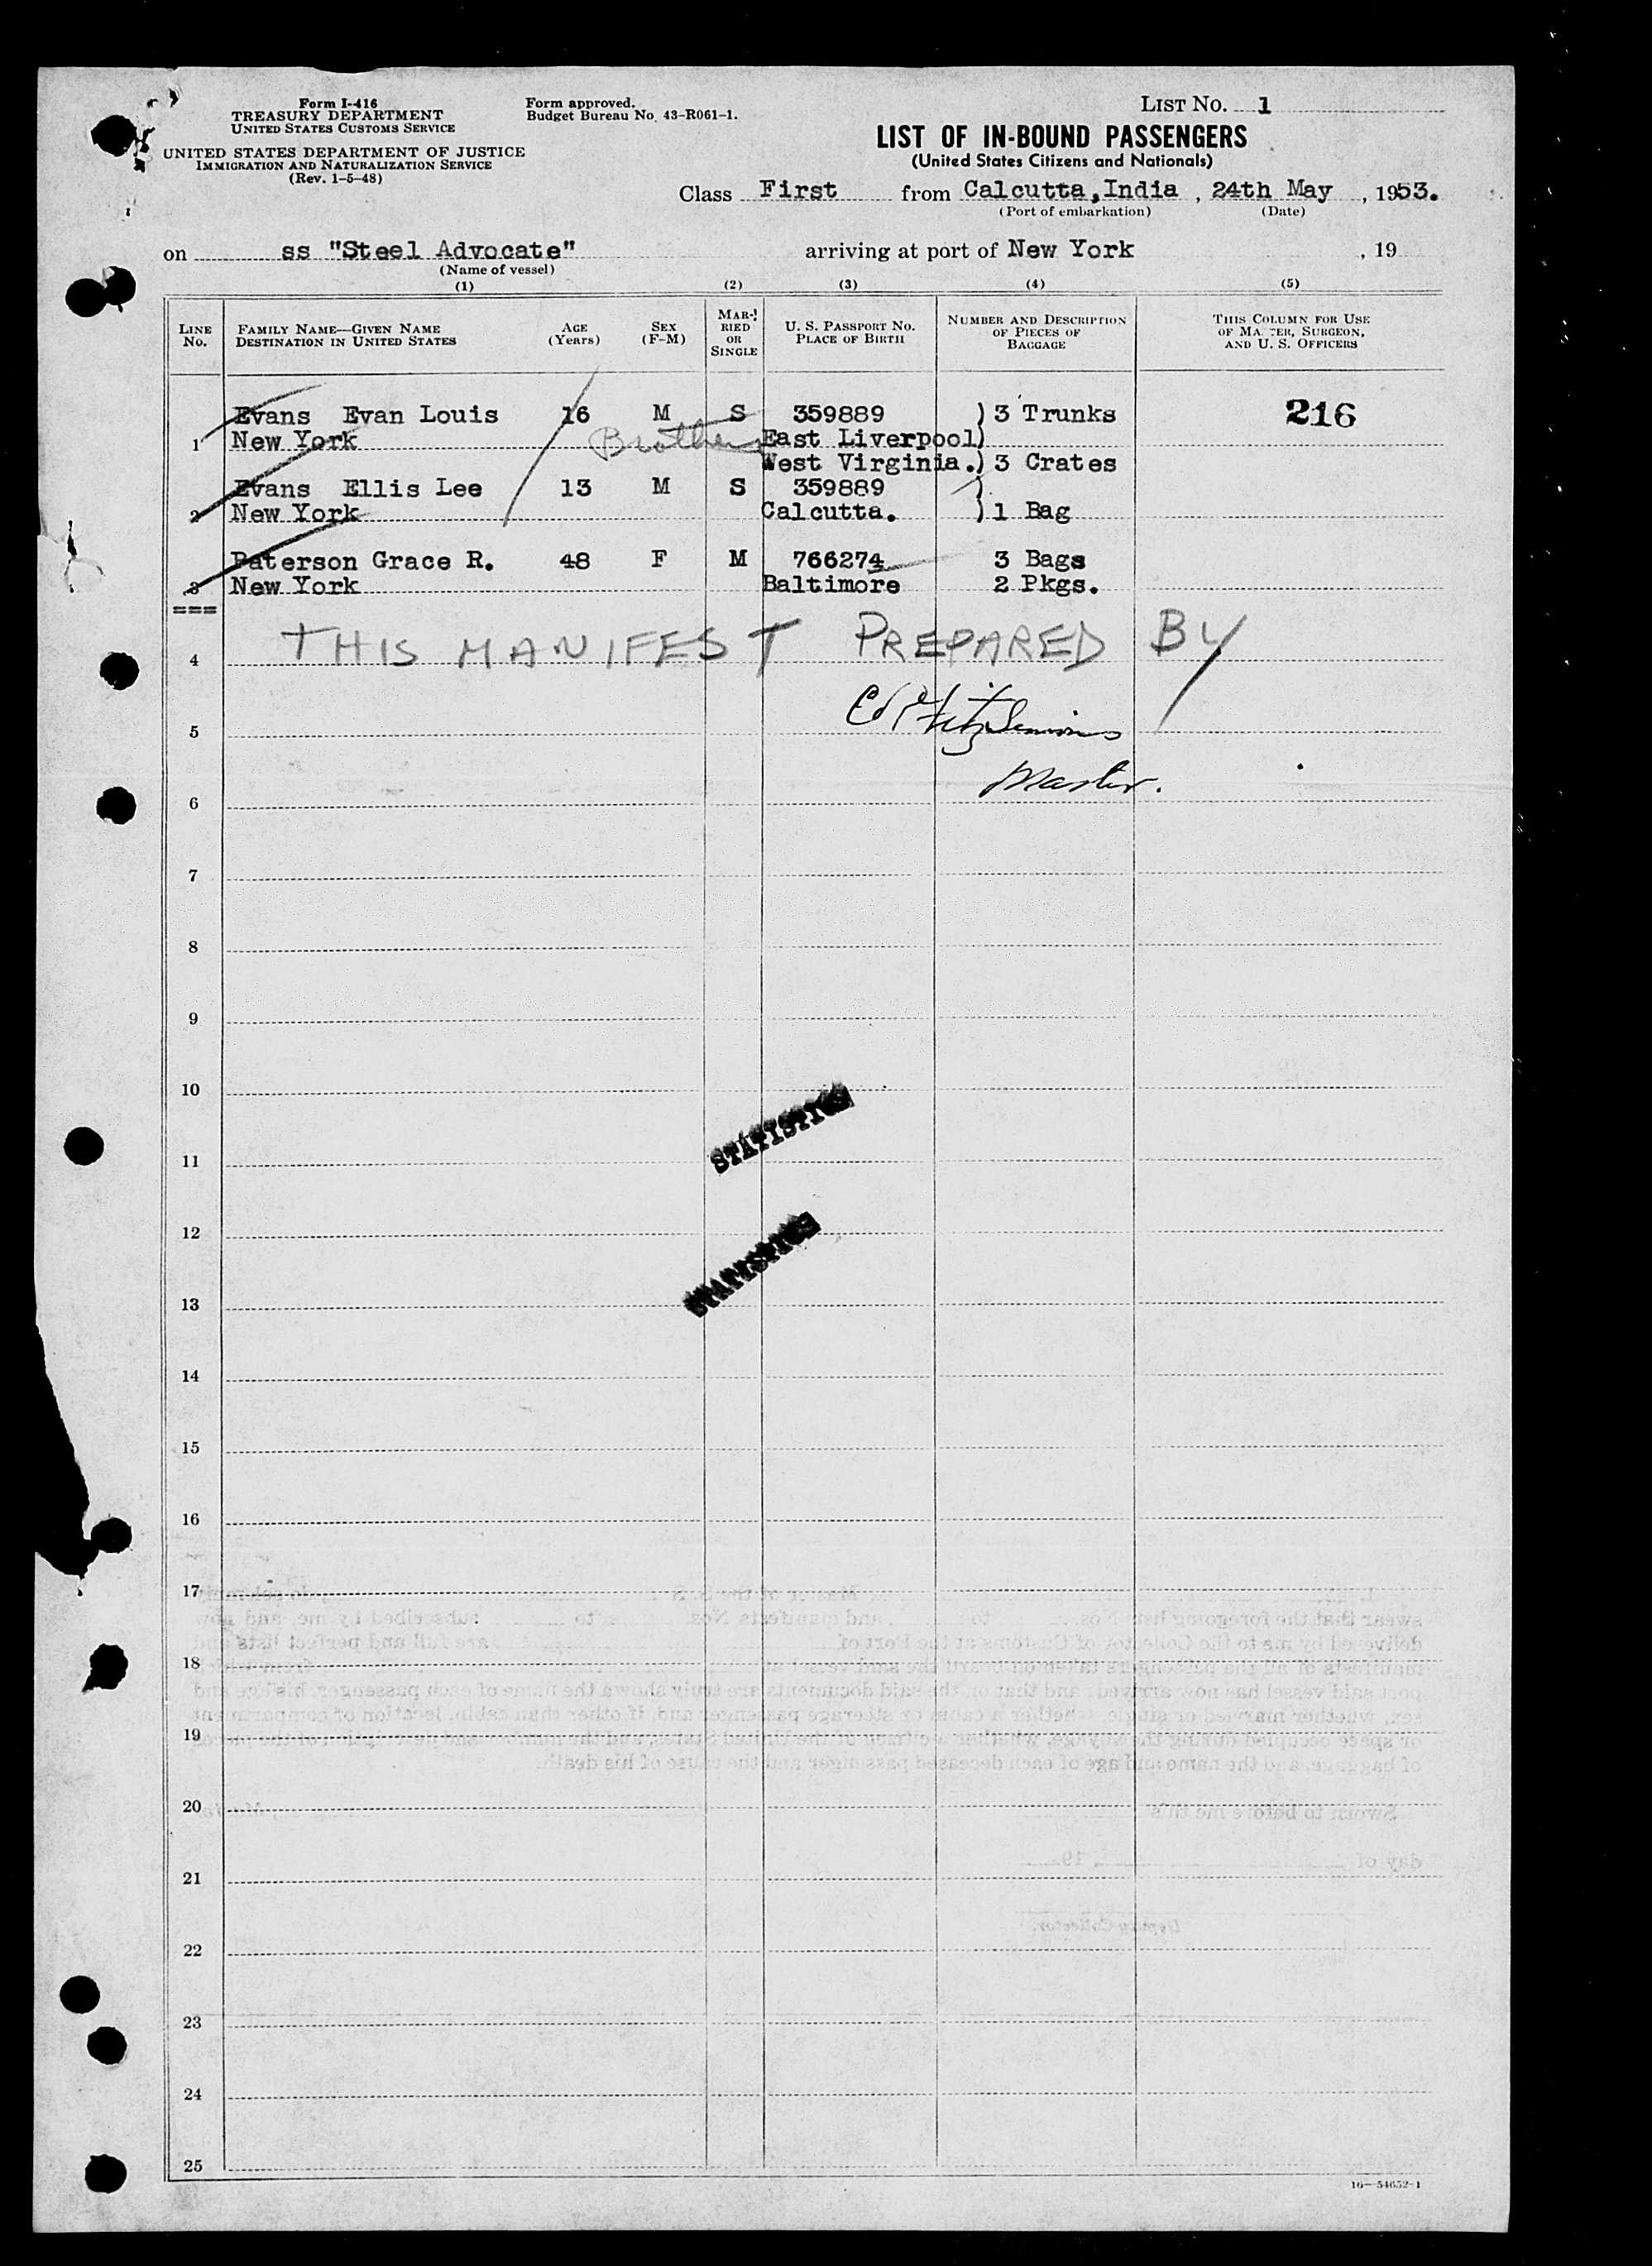 Form I-416
TREASURY DEPARTMENT
UNITED STATES CUSTOMS SERVICE
UNITED STATES DEPARTMENT OF JUSTICE
IMMIGRATION AND NATURALIZATION SERVICE
(Rev. 1-5-48)
Form approved.
Budget Bureau No. 43-R061-1.
LIST NO. 1
LIST OF IN-BOUND PASSENGERS
(United States Citizens and Nationals)
Class First from Calcutta, India , 24th May , 1953.
(Port of embarkation) (Date)
on ss "Steel Advocate" arriving at port of New York , 19
(Name of vessel)
(1) (2) (3) (4) (5)
LINE NO.
FAMILY NAME—GIVEN NAME
DESTINATION IN UNITED STATES
AGE (Years)
SEX (F-M)
MARRIED OR SINGLE
U. S. PASSPORT NO.
PLACE OF BIRTH
NUMBER AND DESCRIPTION OF PIECES OF BAGGAGE
THIS COLUMN FOR USE OF MASTER, SURGEON, AND U. S. OFFICERS
Evans Evan Louis 16 M S 359889 ) 3 Trunks 216
1 New York Brothers East Liverpool)
West Virginia.) 3 Crates
Evans Ellis Lee 13 M S 359889 )
2 New York Calcutta. ) 1 Bag
Paterson Grace R. 48 F M 766274 3 Bags
3 New York Baltimore 2 Pkgs.
===
4 THIS MANIFEST PREPARED BY
5
Master.
6
7
8
9
10
STATISTICS
11
12
STATISTICS
13
14
15
16
17
18
19
20
21
22
23
24
25
16—54652-1